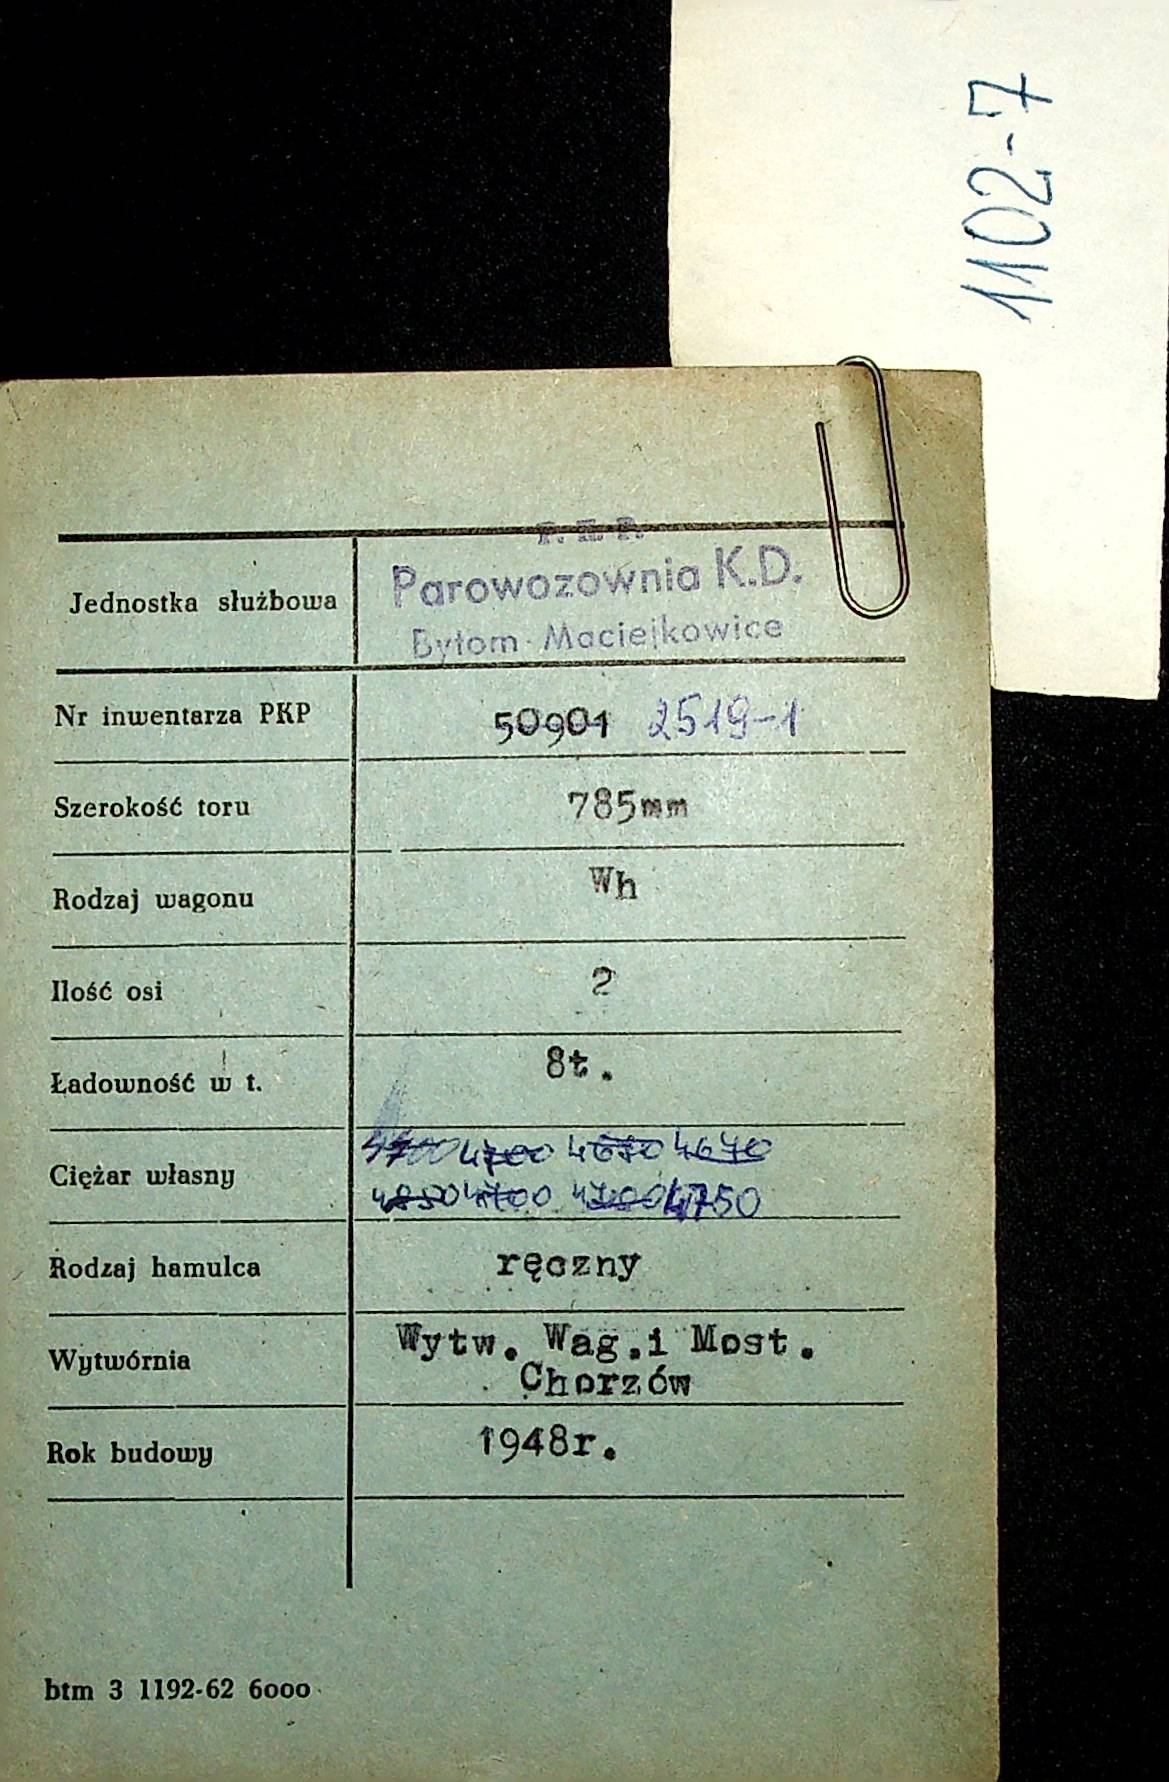 1102-7
Parowozownia K.D.
Jednostka służbowa
Bytom-Maciejkowice
Nr inwentarza PKP 50901 2519-1
Szerokość toru 785mm
Rodzaj wagonu Wh
Ilość osi 2
Ładowność w t. 8t.
4700 4700 4670
Ciężar własny
4850 4700 4700 4750
Rodzaj hamulca ręczny
Wytw. Wag.i Most.
Wytwórnia
Chorzów
Rok budowy 1948r.
btm 3 1192-62 6000